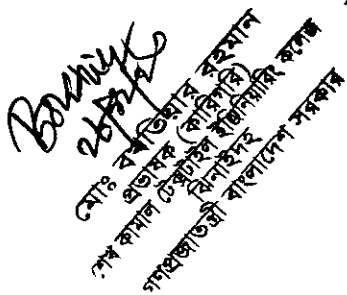 Bokhtiyar
মোঃ বখতিয়ার রহমান
প্রভাষক (কারিগরি)
শেখ কামাল টেক্সটাইল ইঞ্জিনিয়ারিং কলেজ
ঝিনাইদহ
গণপ্রজাতন্ত্রী বাংলাদেশ সরকার